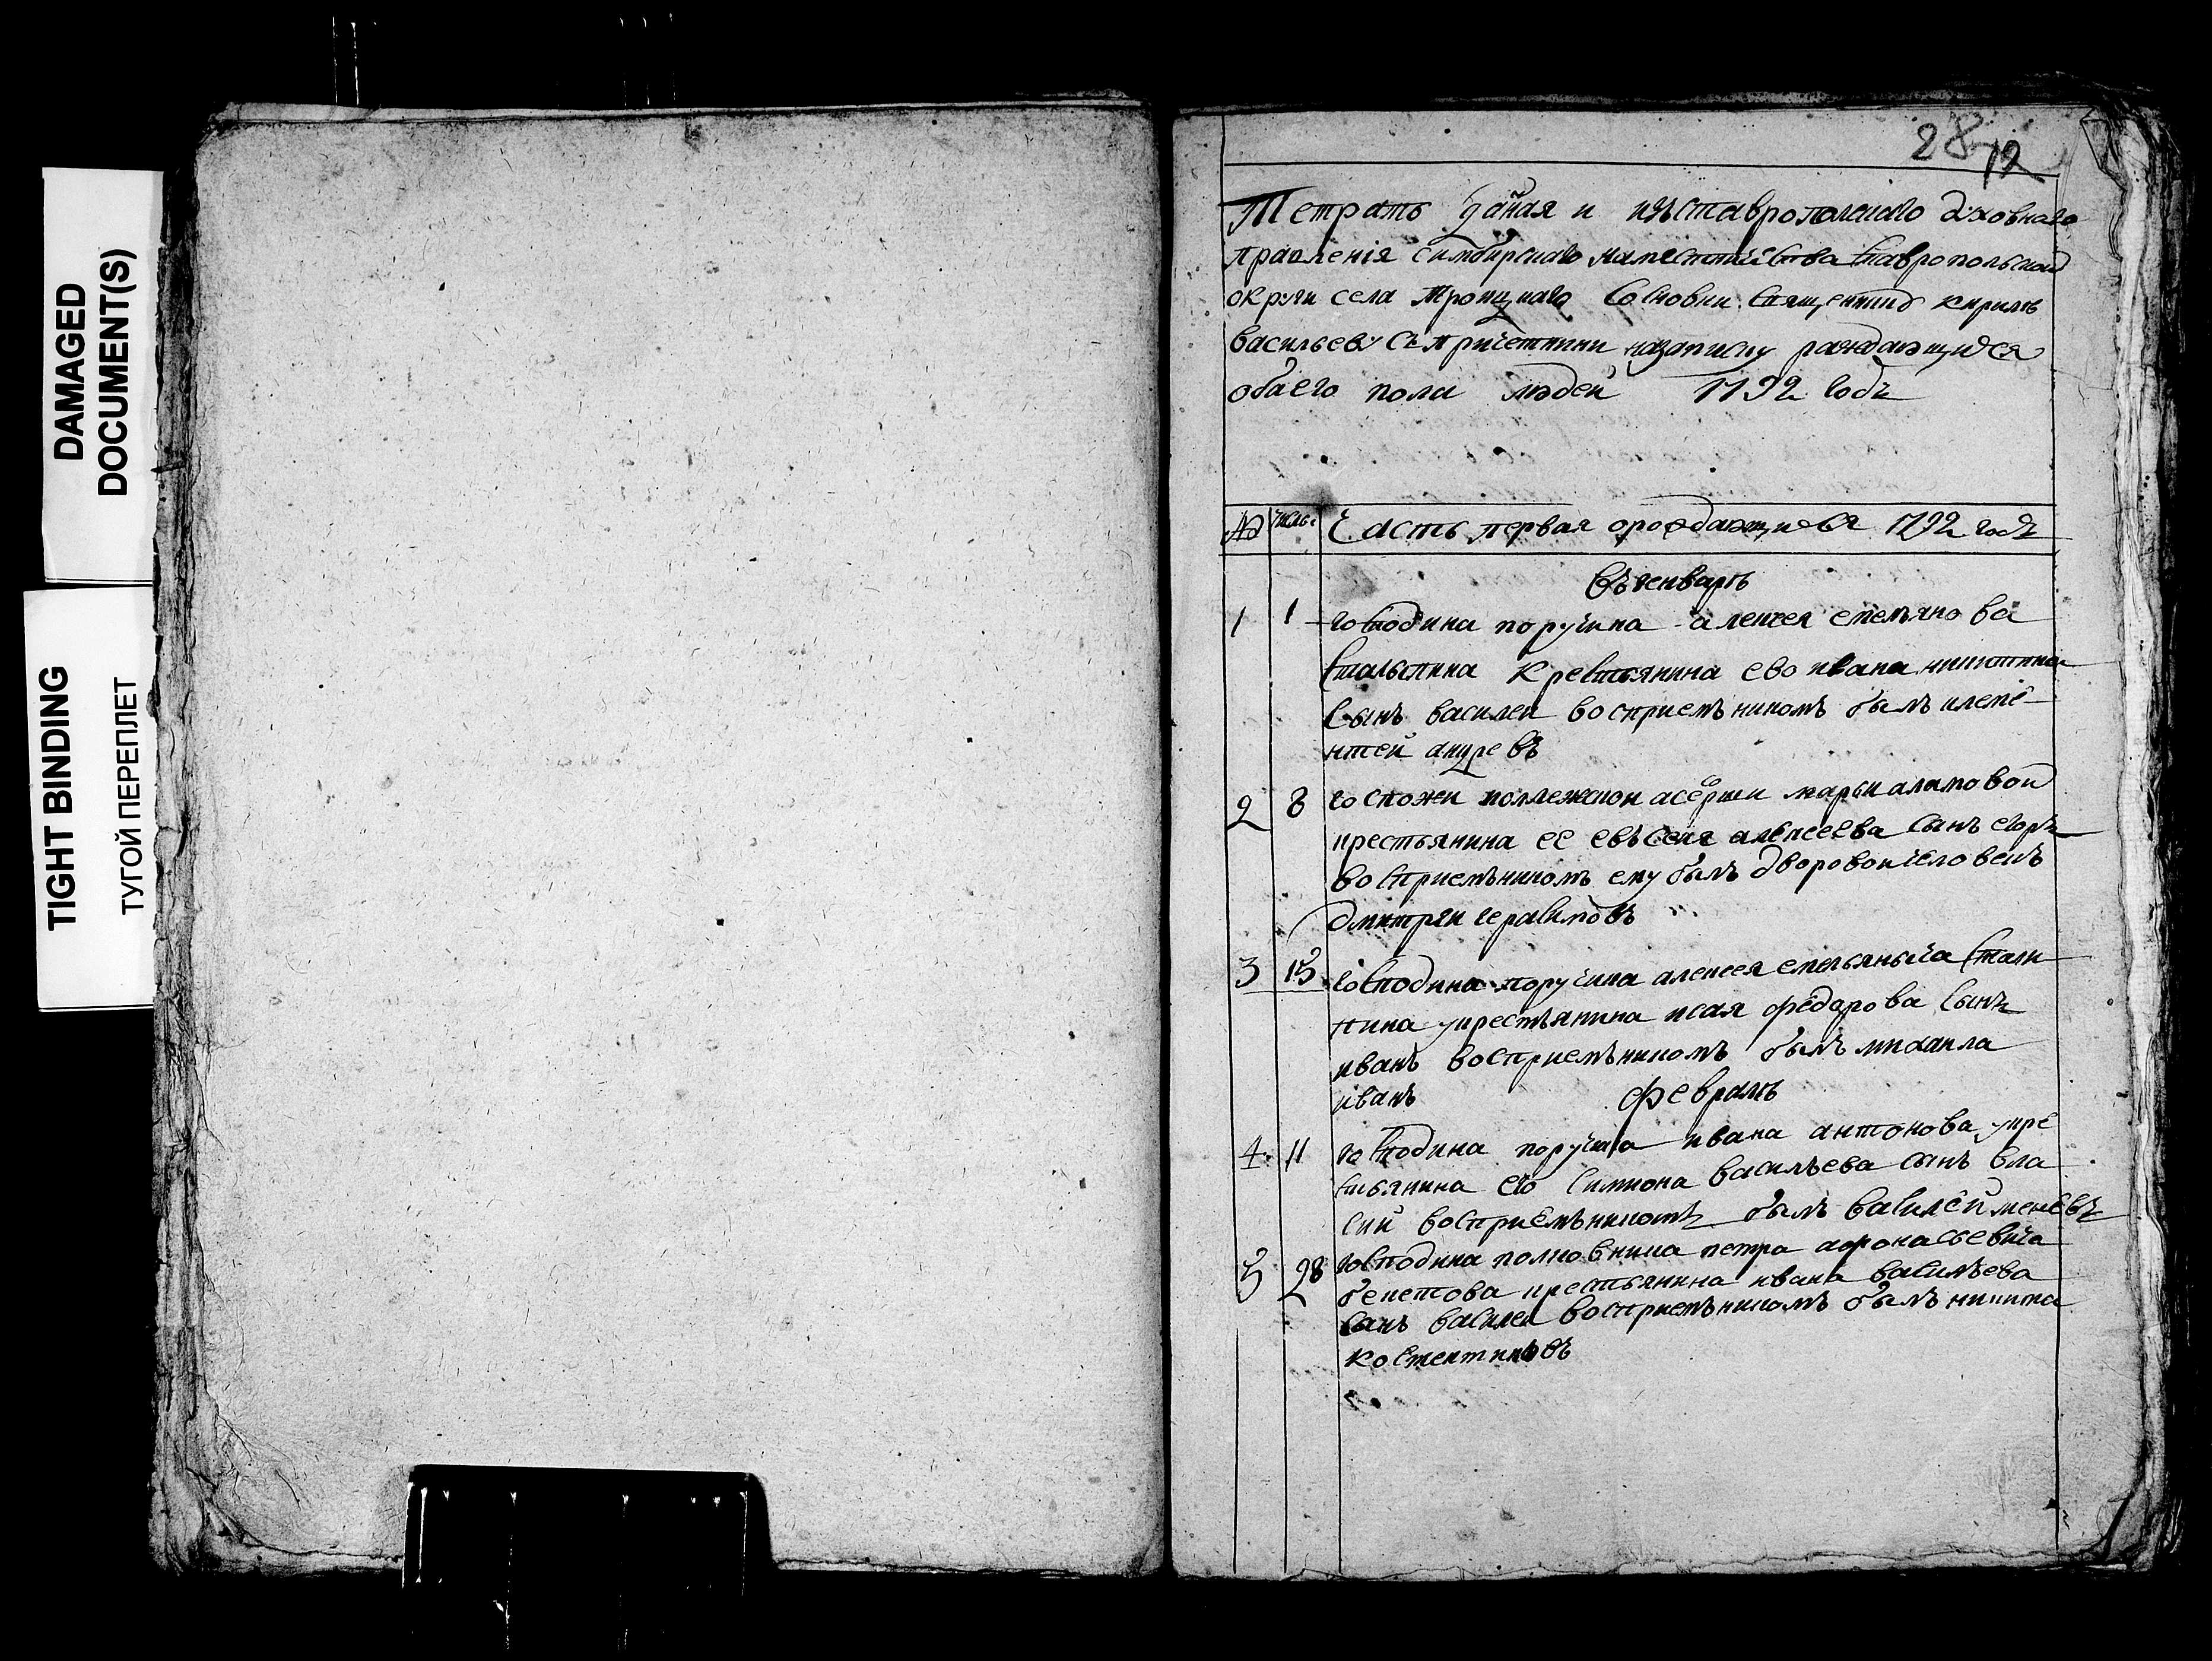 DAMAGED
DOCUMENT(S)
TIGHT BINDING
ТУГОЙ ПЕРЕПЛЕТ
28 12
Тетрать даная и изставропольскаго духовнаго
правленія симбирскаго наместничества ставропольской
округи села Троицкаго Сосновки священнику кирилѣ
васильеву съ причетники назаписку раждающихся
обоего пола людей 1792 годъ
№ числ. Часть первая орождающихся 1792 годъ
въ генварѣ
1 1 господина порутчика алексея емельянова
сталыпина крестьянина ево ивана никитина
сынъ василеи восприемъникомъ былъ клеме-
нтей андревъ
2 8 госпожи коллежской асесорши марьи алашовой
крестьянина ее евъсея алексеева сынъ егоръ
восприемъникомъ ему былъ дворовои человекъ
дмитреи герасимовъ
3 15 господина поручика алексея емельяныча стали
пина укрестьянина исая федорова сынъ
иванъ восприемъникомъ былъ михаила
иванъ февраль
4 11 господина поручика ивана антонова укре
стьянина его симиона васильева сынъ вла
сий восприемъникомъ былъ василей
5 28 господина полковника петра афонасьевича
бекетова крестьянина ивана васильева
сынъ василеи восприемъникомъ былъ никита
костентиновъ